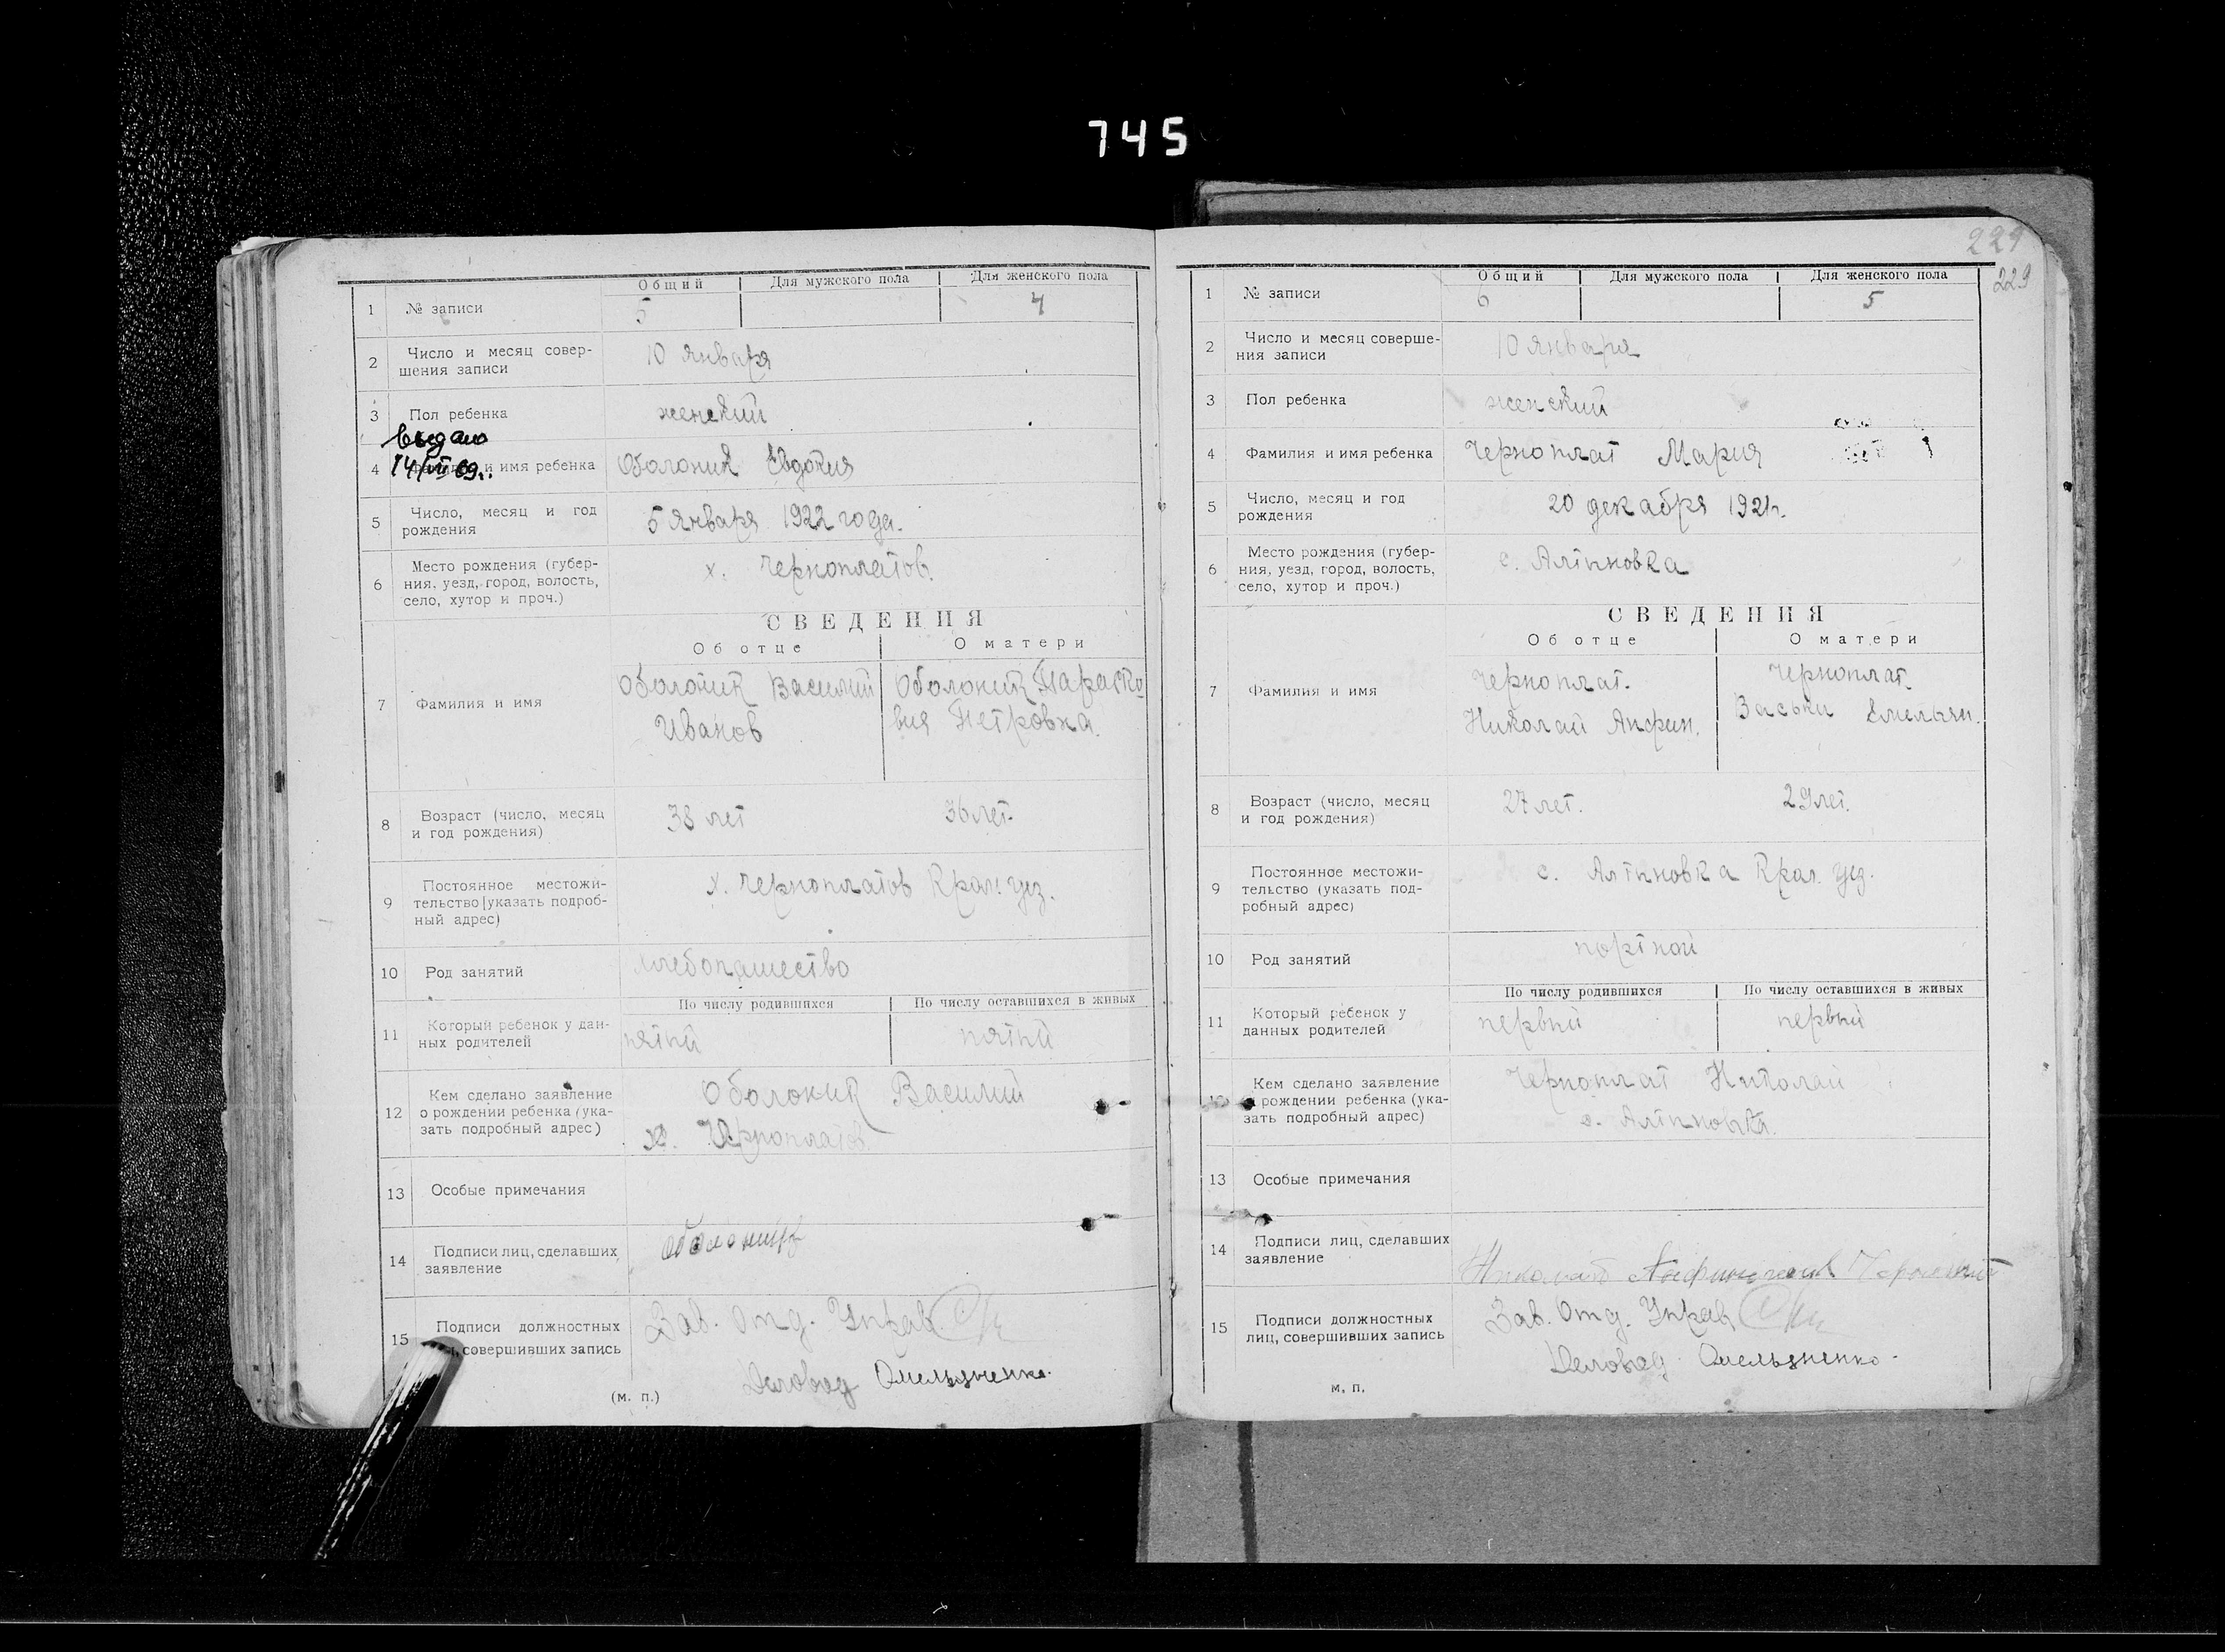 745
Общий Для мужского пола Для женского пола
1 № записи 5 4
2 Число и месяц совер-
шения записи 10 января
3 Пол ребенка женский
выдано
4 и имя ребенка Оболоник Евдокия
5 Число, месяц и год
рождения 5 января 1922 года.
6 Место рождения (губер-
ния, уезд, город, волость,
село, хутор и проч.) х. Черноплатов.
СВЕДЕНИЯ
Об отце О матери
7 Фамилия и имя
Оболоник Василий Оболоник Параско
Иванов вия Петровна.
8 Возраст (число, месяц
и год рождения) 38 лет 36 лет.
9 Постоянное местожи-
тельство [указать подроб-
ный адрес) х. Черноплатов Крол. уез.
10 Род занятий хлебопашество
По числу родившихся По числу оставшихся в живых
11 Который ребенок у дан-
ных родителей пятый пятый
12 Кем сделано заявление
о рождении ребенка (ука-
зать подробный адрес)
Оболоник Василий
х. Черноплатов
13 Особые примечания
14 Подписи лиц, сделавших
заявление
15 Подписи должностных
совершивших запись
Зав. Отд. Управ.
Деловод Омельяненко.
(м. п.)
229
229
Общий Для мужского пола Для женского пола
1 № записи 6 5
2 Число и месяц соверше-
ния записи 10 января
3 Пол ребенка женский
4 Фамилия и имя ребенка Черноплат Мария
5 Число, месяц и год
рождения 20 декабря 1921 г.
6 Место рождения (губер-
ния, уезд, город, волость,
село, хутор и проч.) с. Алтыновка
СВЕДЕНИЯ
Об отце О матери
7 Фамилия и имя
Черноплат. Черноплат.
Николай Анфин. Емельян.
8 Возраст (число, месяц
и год рождения) 27 лет. 29 лет.
9 Постоянное местожи-
тельство (указать под-
робный адрес) с. Алтыновка Крол. уез.
10 Род занятий портной
По числу родившихся По числу оставшихся в живых
11 Который ребенок у
данных родителей первый первый
12 Кем сделано заявление
о рождении ребенка (ука-
зать подробный адрес)
Черноплат Николай
с. Алтыновка.
13 Особые примечания
14 Подписи лиц, сделавших
заявление
Николай Черноплат
15 Подписи должностных
лиц, совершивших запись
Зав. Отд. Управ.
Деловод Омельяненко.
м. п.